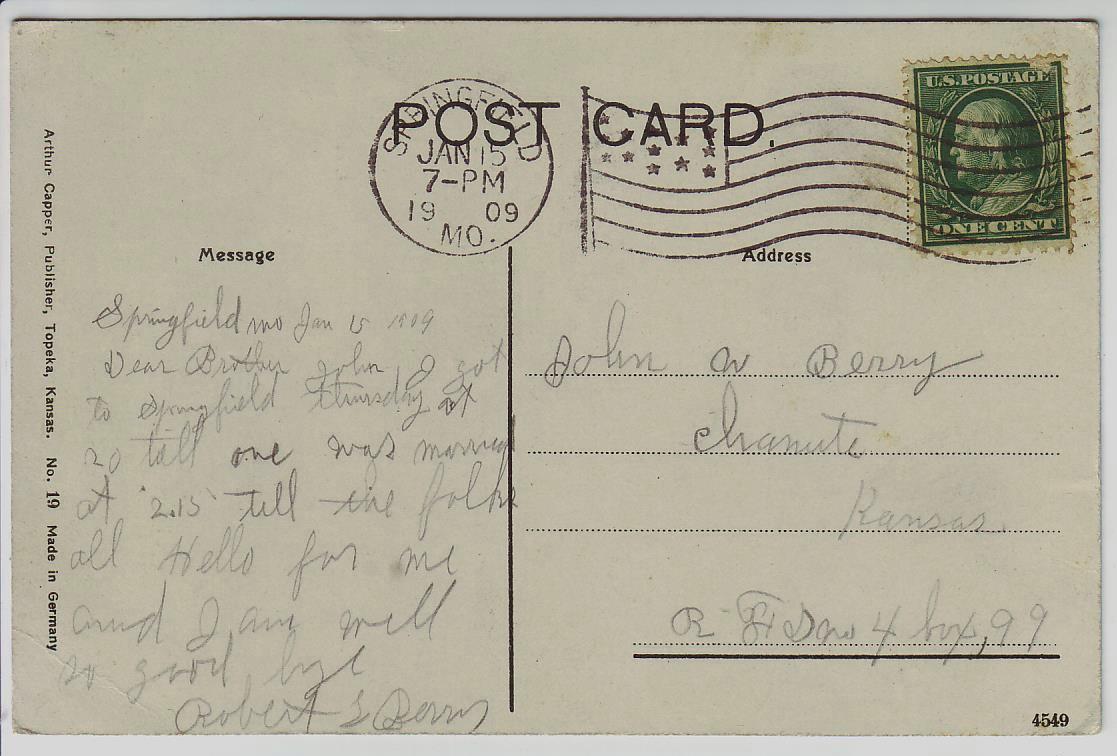 POST CARD.
SPRINGFIELD
JAN 15
7-PM
19 09
MO.
U.S. POSTAGE
ONE CENT
Message
Address
Arthur Capper, Publisher, Topeka, Kansas. No. 19 Made in Germany
Springfield mo Jan 15 1909
Dear Brother John I got
to Springfield thursday at
20 till one was married
at 2.15 tell the folks
all Hello for me
and I am well
so good bye
Robert S Berry
John W Berry
Chanute
Kansas.
R F D no 4 box, 99
4549